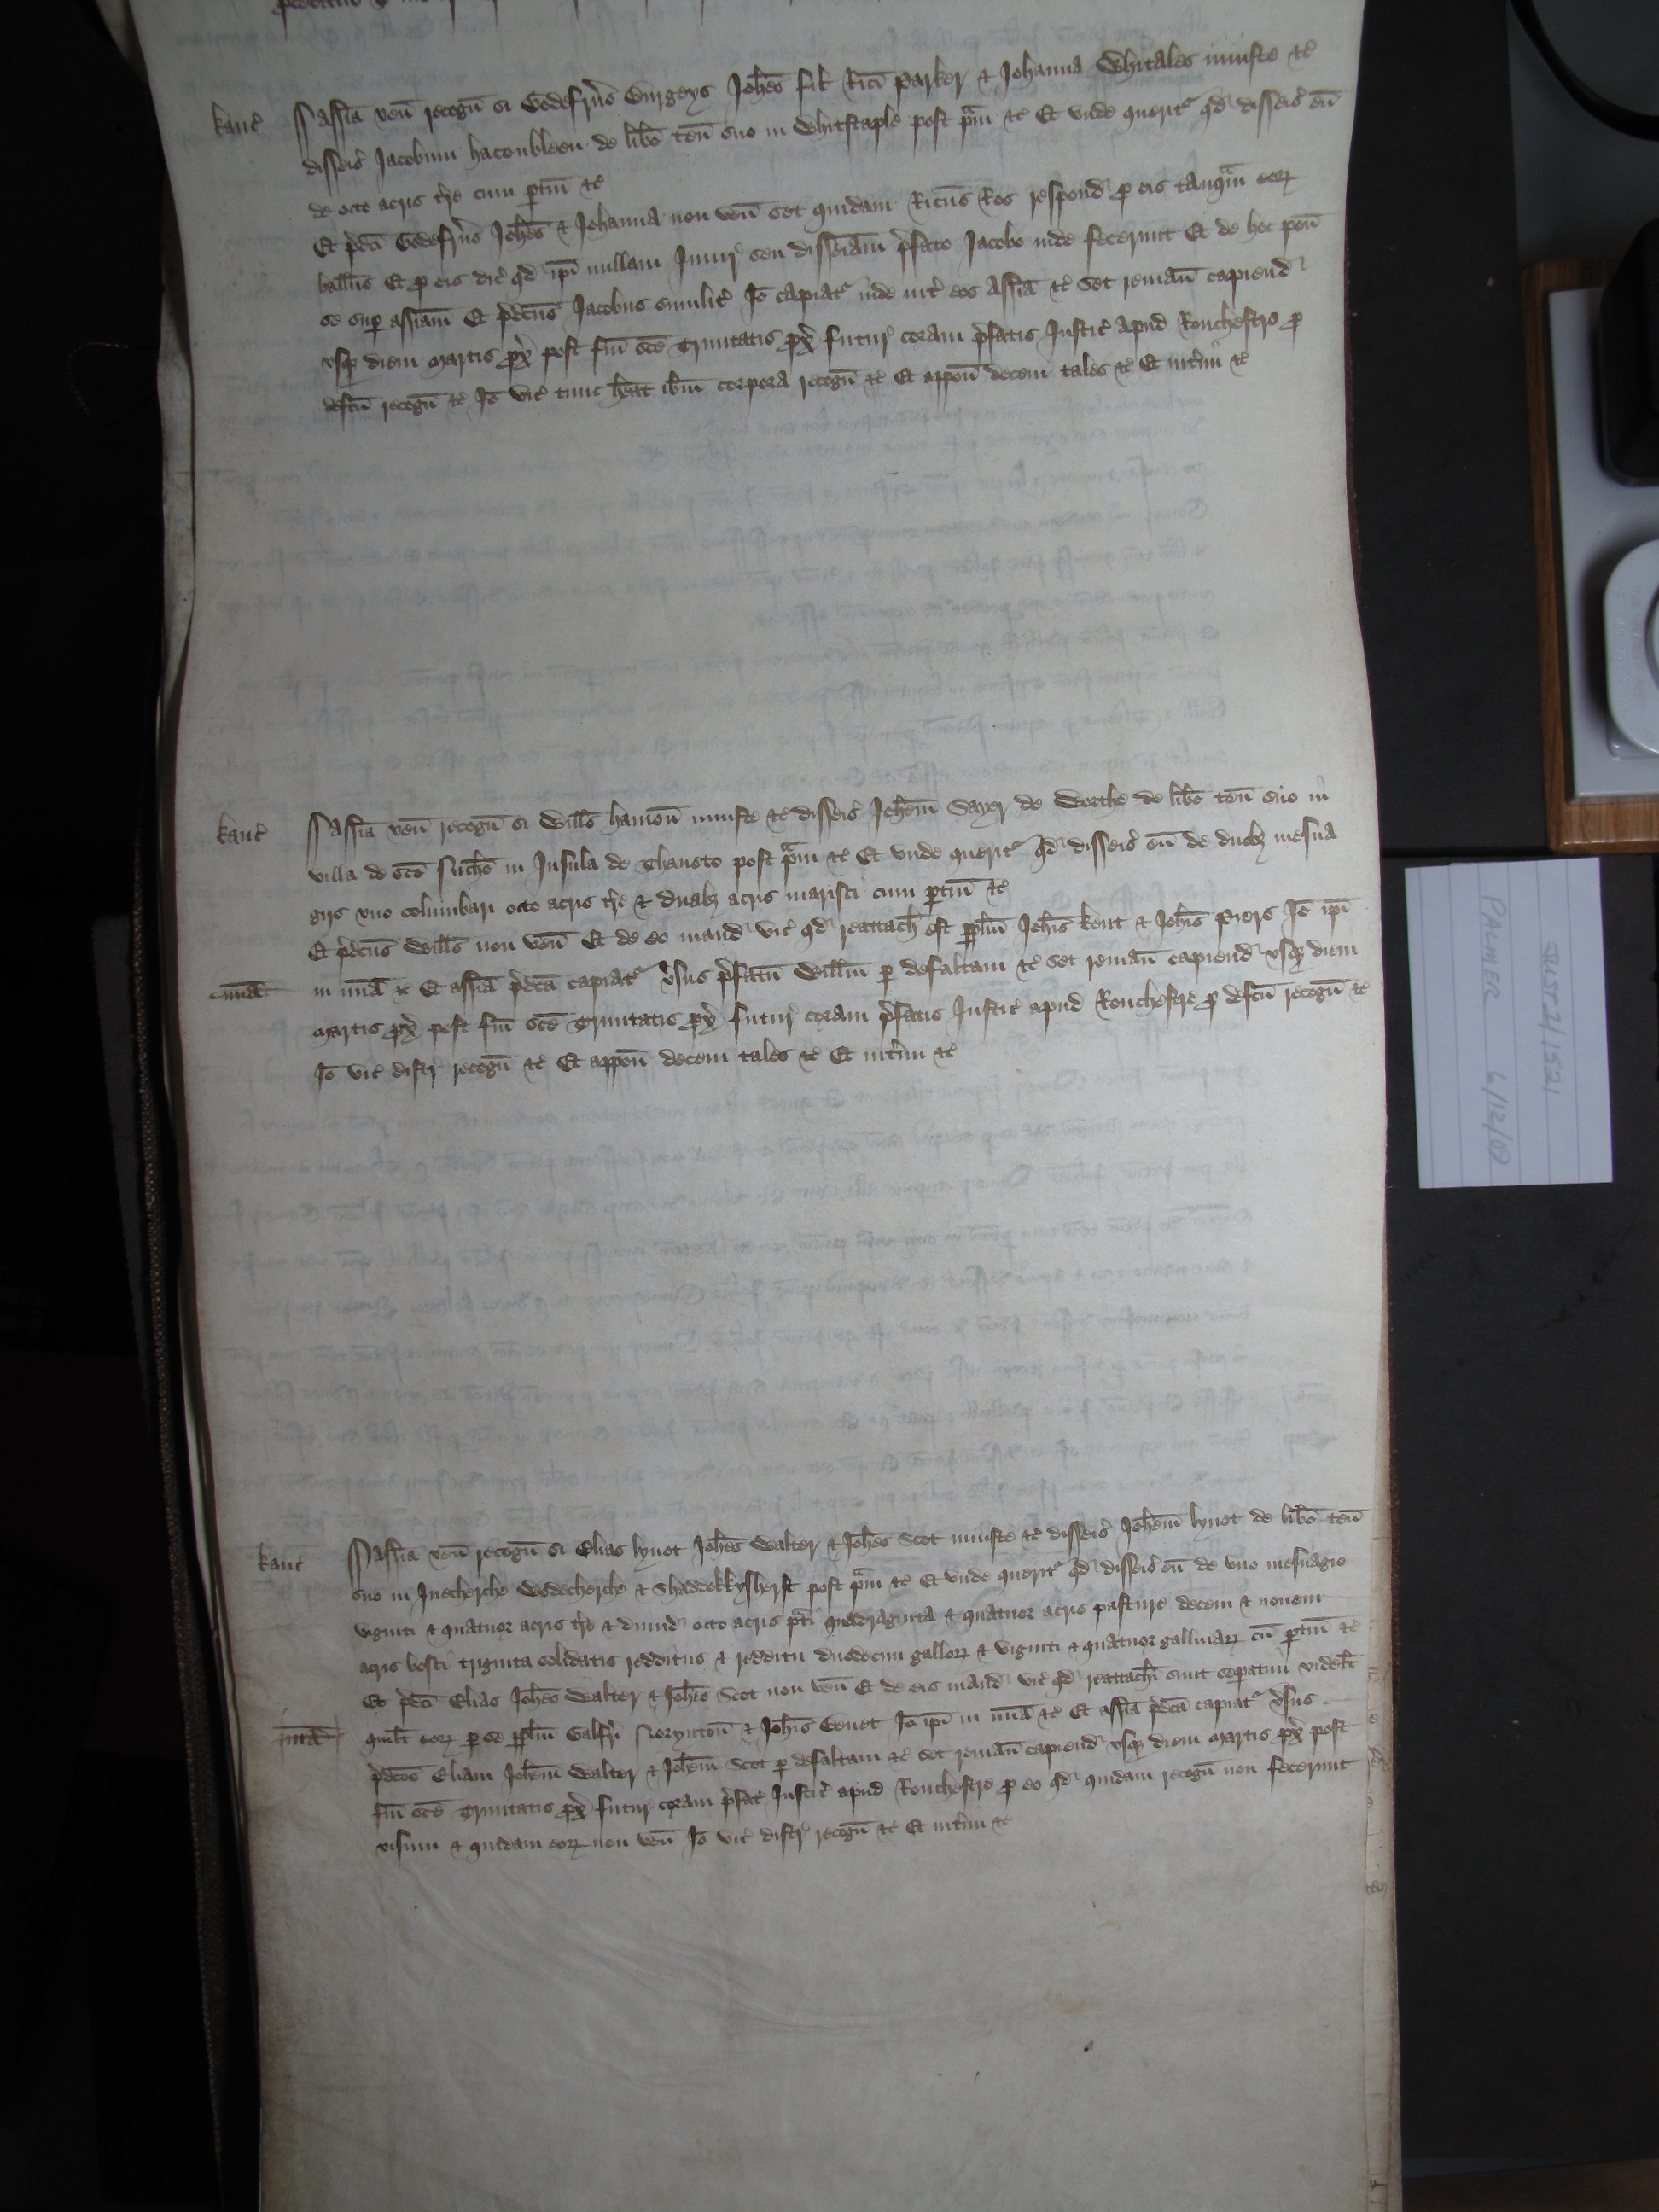 kanc̄
Assīa ven̄ recogn̄ si Godefrūs Burgeys Joh̄es fil Rici Parker & Johanna Whitales iniuste &c̄
disseis̄ Jacobum haconbleen de lib̄o ten̄ suo in Whitstaple post p̄m &c̄ Et unde querit̄ qd̄ disseis̄ eū
de octo acris t̄re cum p̄tin̄ &c̄
Et p̄dc̄i Godefrūs Joh̄es & Johanna non ven̄ set quidam Ric̄us Ros respond̄ p̄ eis tanq̄m eoꝝ
ball̄us Et p̄ eis dic̄ qd̄ ip̄i nullam Iniur̄ seu disseīam p̄fato Jacobo inde fecerunt Et de hoc pon̄
se sup̄ assīam Et p̄dc̄us Jacobus similit̄ Iō capiat̄ inde int̄ eos Assīa &c̄ Set reman̄ capiend̄
usq̄ diem martis p̄x̄ post fm̄ sc̄e Trinitatis p̄x̄ futur̄ coram p̄fatis Justic̄ apud Rouchestre p̄
defc̄u recogn̄ &c̄ Iō vic̄ tunc h̄eat ib̄m corpora recogn̄ &c̄ Et appon̄ decem tales &c̄ Et int̄im &c̄
kanc̄
Assīa ven̄ recogn̄ si Will̄s hamon̄ iniuste &c̄ disseis̄ Joh̄em Sayer de Worthe de lib̄o ten̄ suo in
villa de sc̄o Nich̄o in Insula de Thaneto post p̄m &c̄ Et unde querit̄ qd̄ disseis̄ eū de duob̄ mesua
gijs uno columbari octo acris t̄re & duab̄ acris marisci cum p̄tin̄ &c̄
Et p̄dc̄us Will̄s non ven̄ Et de eo mand̄ vic̄ qd̄ reattach̄ est p̄ pl̄m Joh̄is kent & Joh̄is Piers Iō ip̄i
mīa
in mīa &c̄ Et assīa p̄dc̄a capiat̄ v̄sus p̄fatū Will̄m p̄ defaltam &c̄ Set reman̄ capiend̄ usq̄ diem
martis p̄x̄ post fm̄ sc̄e Trinitatis p̄x̄ futur̄ coram p̄fatis Justic̄ apud Rouchestre p̄ defc̄u recogn̄ &c̄
Iō vic̄ distr̄ recogn̄ &c̄ Et appon̄ decem tales &c̄ Et int̄im &c̄
kanc̄
Assīa ven̄ recogn̄ si Elias lynot Joh̄es Walter & Joh̄es Scot iniuste &c̄ disseis̄ Joh̄em lynot de lib̄o ten̄
suo in Inecherche Wodecherche & Shaddokkysherst post p̄m &c̄ Et unde querit̄ qd̄ disseis̄ eū de uno mesuagio
viginti & quatuor acris t̄re & dimid̄ octo acris p̄ti quadraginta & quatuor acris pasture decem & novem
acris bosci triginta solidatis redditus & redditu duodecim galloꝝ & viginti & quatuor gallinaꝝ cū p̄tin̄ &c̄
Et p̄dc̄i Elias Joh̄es Walter & Joh̄es Scot non ven̄ Et de eis mand̄ vic̄ qd̄ reattach̄ sunt sep̄atim videl̄t
mīa
quil̄t eoꝝ p̄ se p̄ pl̄m Galfr̄i Norynton̄ & Joh̄is Benet Iō ip̄i in mīa &c̄ Et assīa p̄dc̄a capiat̄ v̄sus
p̄dc̄os Eliam Joh̄em Walter & Joh̄em Scot p̄ defaltam &c̄ Set reman̄ capiend̄ usq̄ diem martis p̄x̄ post
fm̄ sc̄e Trinitatis p̄x̄ futur̄ coram p̄fat̄ Justic̄ apud Rouchestre p̄ eo qd̄ quidam recogn̄ non fecerunt
visum & quidam eoꝝ non ven̄ Iō vic̄ distr̄ recogn̄ &c̄ Et int̄im &c̄
JUST 2/1521
PALMER 6/12/09